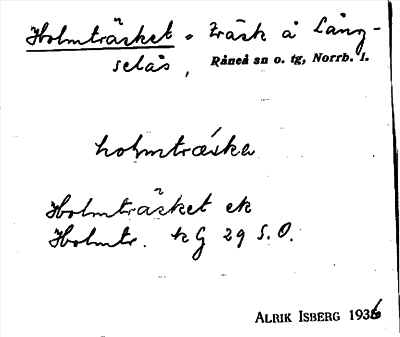 Holmträsket. Träsk å Lång-
selås, Råneå sn o. tg, Norrb. l.
holmtræ̂ska
Holmträsket ek
Holmtr. kG 29 S.O.
ALRIK ISBERG 1936